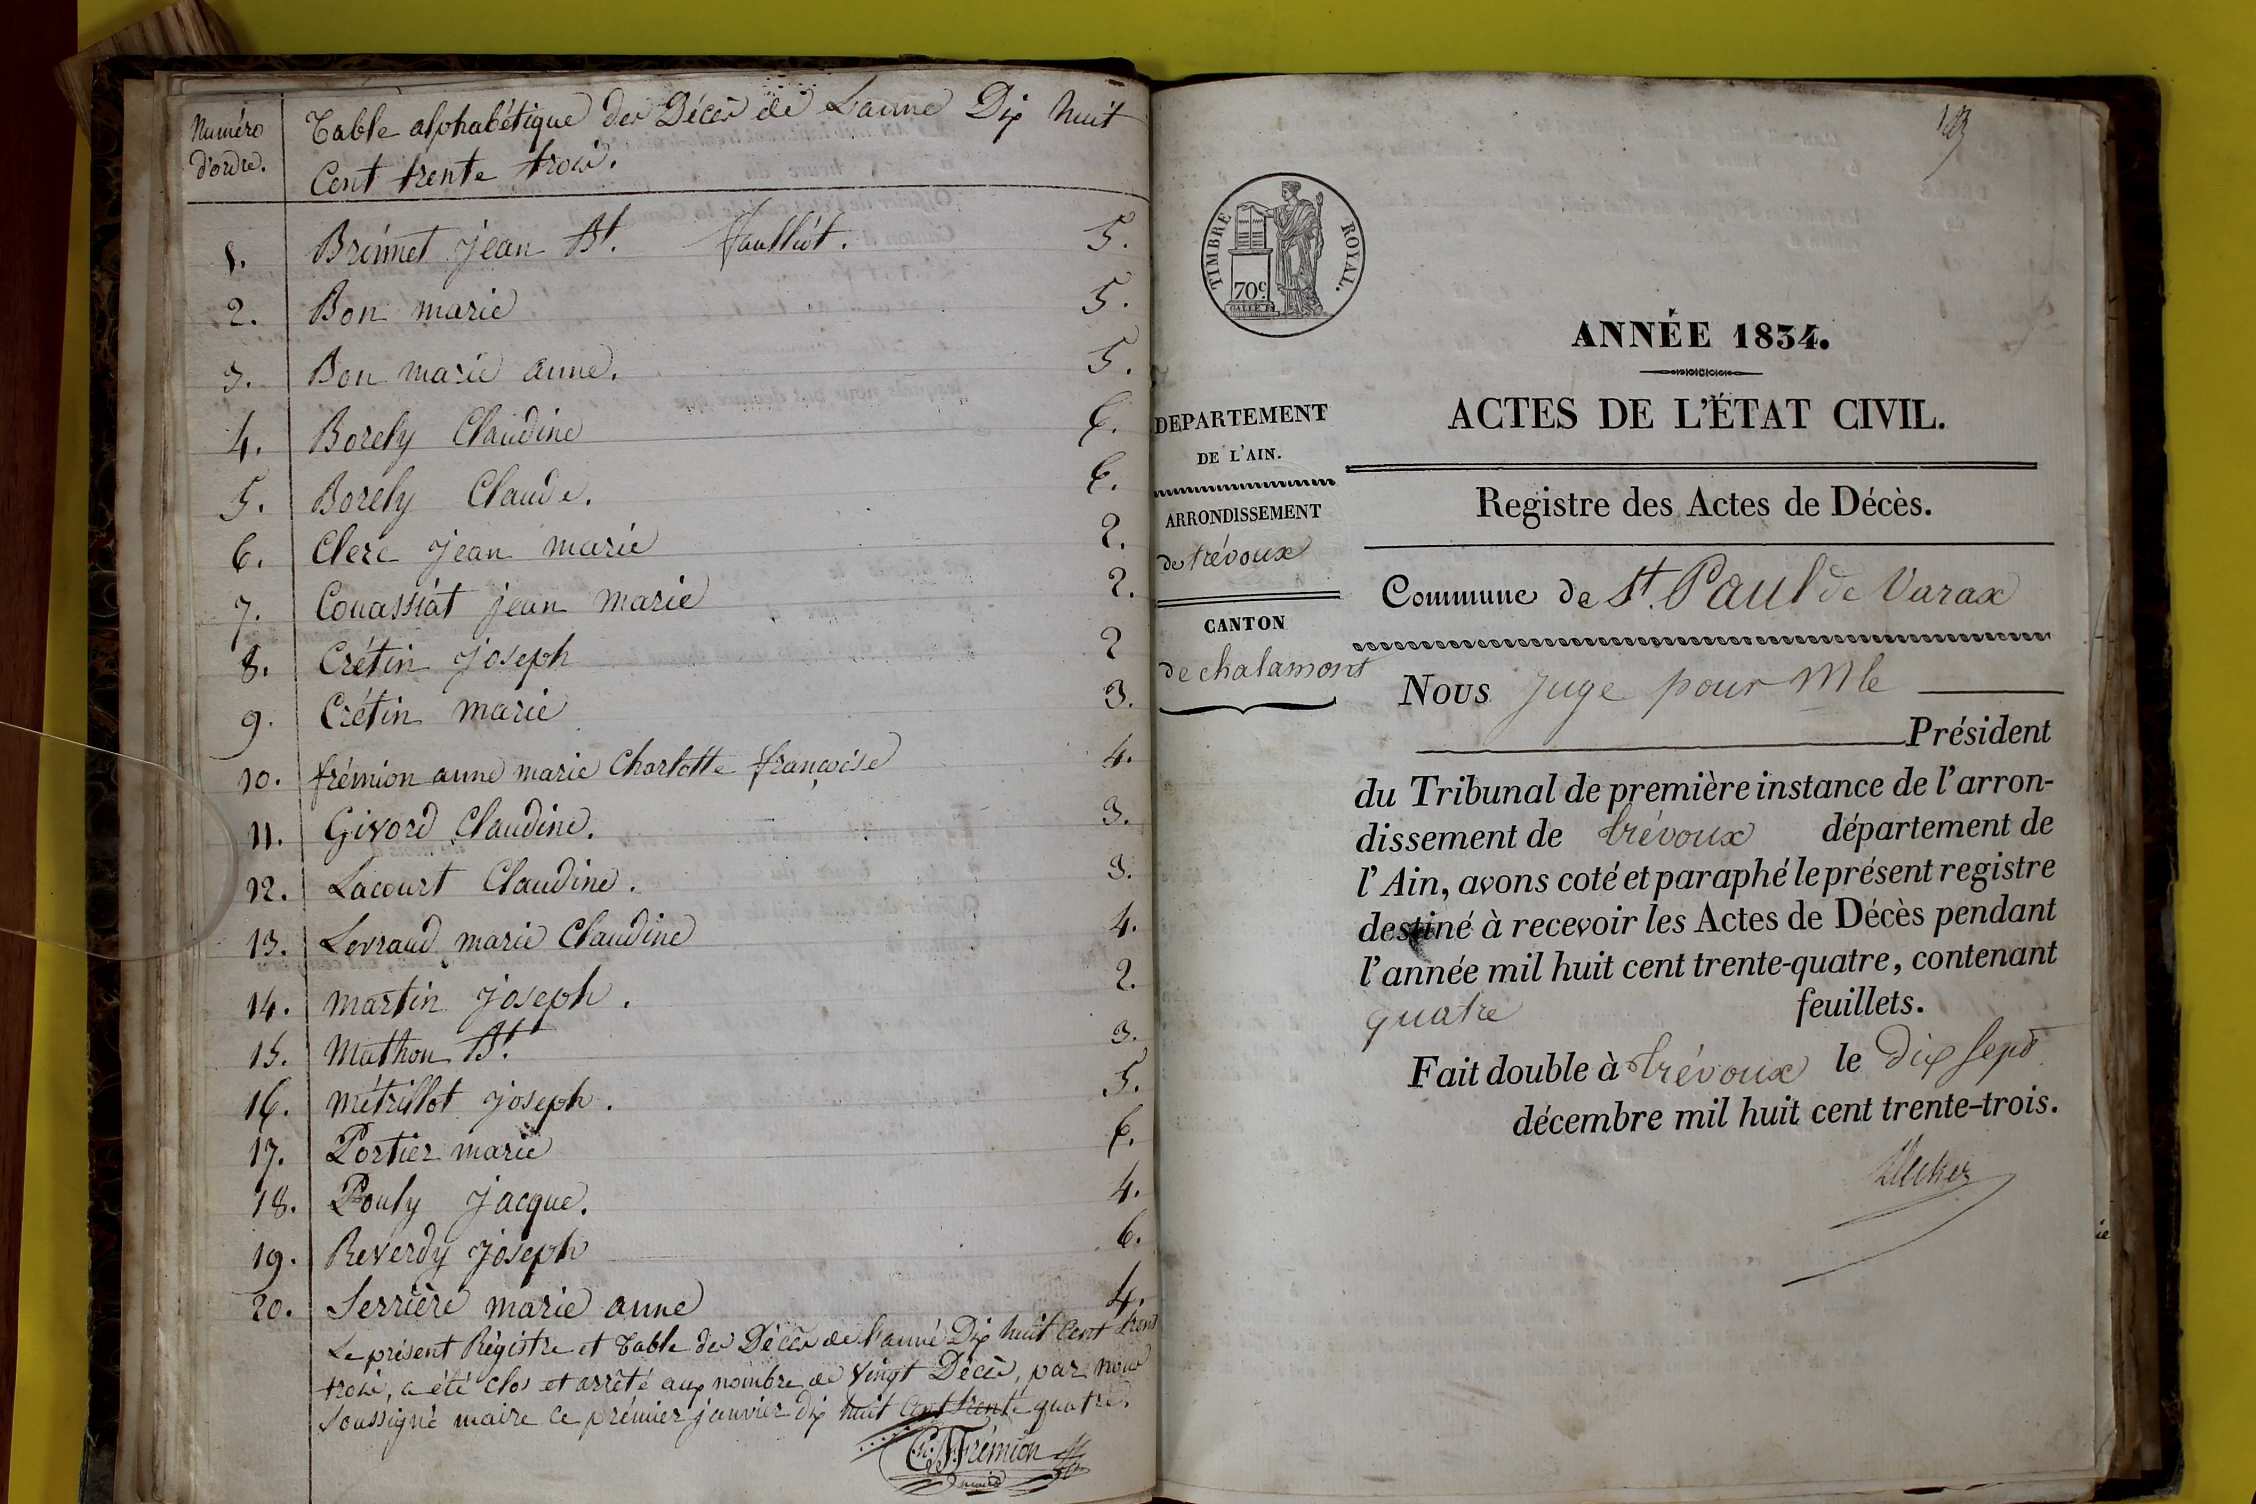 Numéro
d'ordre.
Table alphabétique des Décès de L'anné Dix huit
Cent trente trois.
1. Brimet jean Bt. 5.
2. Bon marie 5.
3. Bon marie anne. 5.
4. Borely Claudine 6.
5. Borély Claude. 6.
6. Clerc jean marie 2.
7. Couassiat jean marie 2.
8. Crétin joseph 2
9. Crétin marie 3.
10. frémion anne marie Charlotte françoise 4.
11. Givord Claudine. 3.
12. Lacourt Claudine. 3.
13. Levraud marie Claudine 4.
14. martin joseph. 2.
15. Mathon Bt. 3.
16. métrillot joseph. 5.
17. Portier marie 6.
18. Pouly jacque. 4.
19. Reverdy joseph 6.
20. Serrière marie anne 4.
Le présent Régistre et Table des Décès de l'anné Dix huit Cent trent
trois, a été clos et arrêté aux nombre de vingt Décès, par nous
soussigné maire ce prémier janvier dix huit cent trente quatre.
Frémion
maire
TIMBRE ROYAL.
70c
ANNÉE 1834.
ACTES DE L'ÉTAT CIVIL.
DEPARTEMENT
DE L'AIN.
ARRONDISSEMENT
de trévoux
CANTON
de chalamont
Registre des Actes de Décès.
Commune de St. Paul de Varax
Nous juge pour Mle
Président
du Tribunal de première instance de l'arron-
dissement de trévoux département de
l'Ain, avons coté et paraphé le présent registre
destiné à recevoir les Actes de Décès pendant
l'année mil huit cent trente-quatre, contenant
quatre feuillets.
Fait double à trévoux le dix sept
décembre mil huit cent trente-trois.